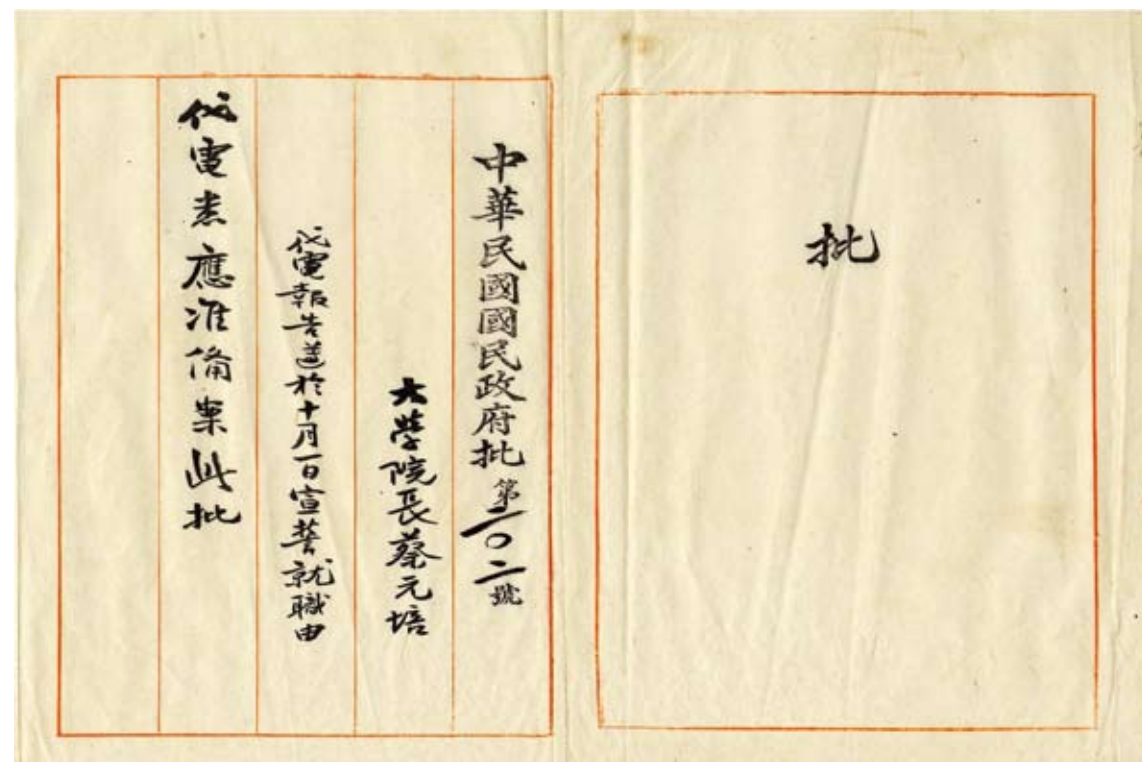 批
中華民國國民政府批第二〇二號
大學院長蔡元培
代電報告遵於十月一日宣誓就職由
代電悉應准備案此批